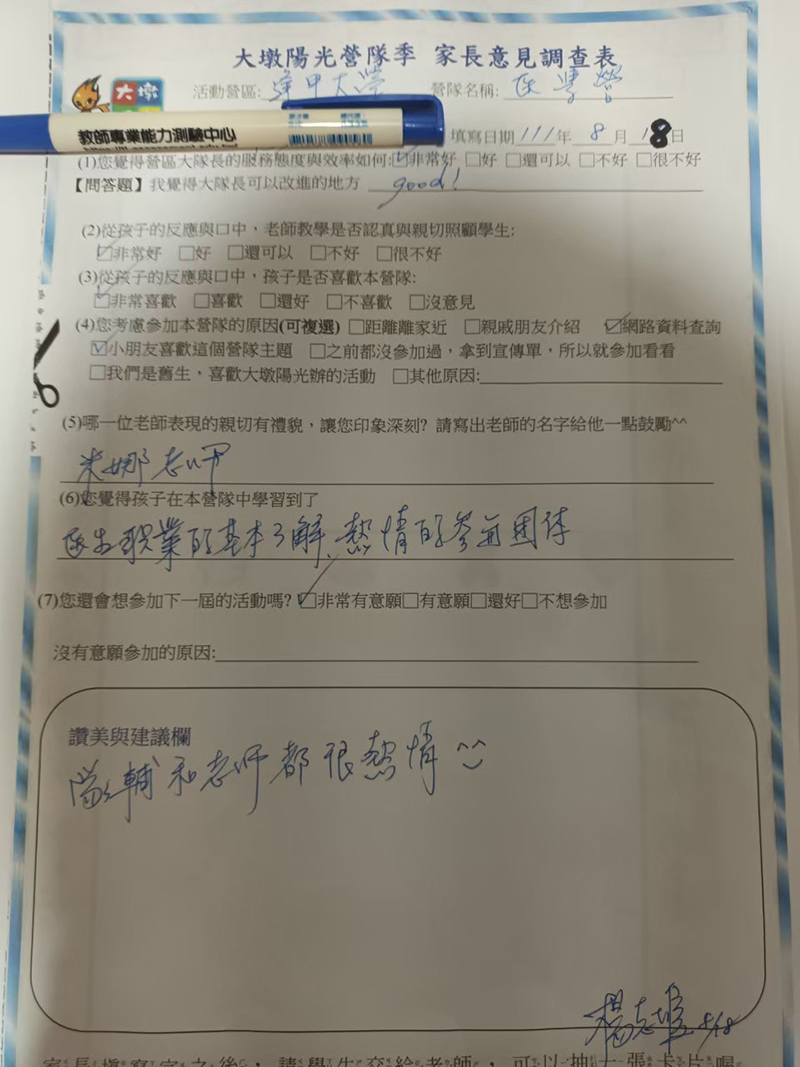 大墩陽光營隊季 家長意見調查表
大墩
活動營區: 逢甲大學 營隊名稱: 医學營
教師專業能力測驗中心
填寫日期 111 年 8 月 18 日
(1)您覺得營區大隊長的服務態度與效率如何:☑非常好 □好 □還可以 □不好 □很不好
【問答題】我覺得大隊長可以改進的地方 good!
(2)從孩子的反應與口中，老師教學是否認真與親切照顧學生:
☑非常好 □好 □還可以 □不好 □很不好
(3)從孩子的反應與口中，孩子是否喜歡本營隊:
☑非常喜歡 □喜歡 □還好 □不喜歡 □沒意見
(4)您考慮參加本營隊的原因(可複選) □距離離家近 □親戚朋友介紹 ☑網路資料查詢
☑小朋友喜歡這個營隊主題 □之前都沒參加過，拿到宣傳單，所以就參加看看
□我們是舊生，喜歡大墩陽光辦的活動 □其他原因:
(5)哪一位老師表現的親切有禮貌，讓您印象深刻? 請寫出老師的名字給他一點鼓勵^^
米娜老师
(6)您覺得孩子在本營隊中學習到了
医生职業的基本了解、熱情的參與团体
(7)您還會想參加下一屆的活動嗎? ☑非常有意願□有意願□還好□不想參加
沒有意願參加的原因:
讚美與建議欄
隊輔和老师都很熱情^^
楊志 8/18
家長填寫完之後，請學生交給老師，可以抽一張卡片喔